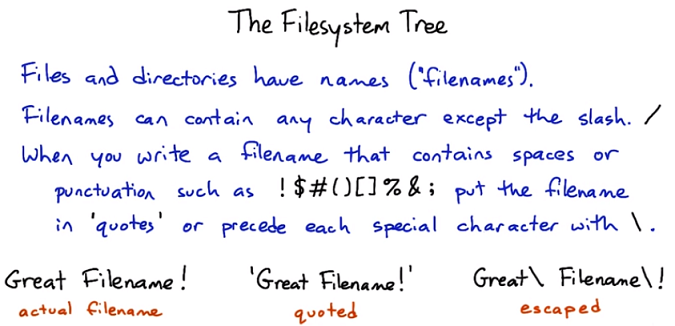 The Filesystem Tree
Files and directories have names ("filenames").
Filenames can contain any character except the slash. /
When you write a filename that contains spaces or
punctuation such as !$#()[]%&; put the filename
in 'quotes' or precede each special character with \.
Great Filename! 'Great Filename!' Great\ Filename\!
actual filename quoted escaped